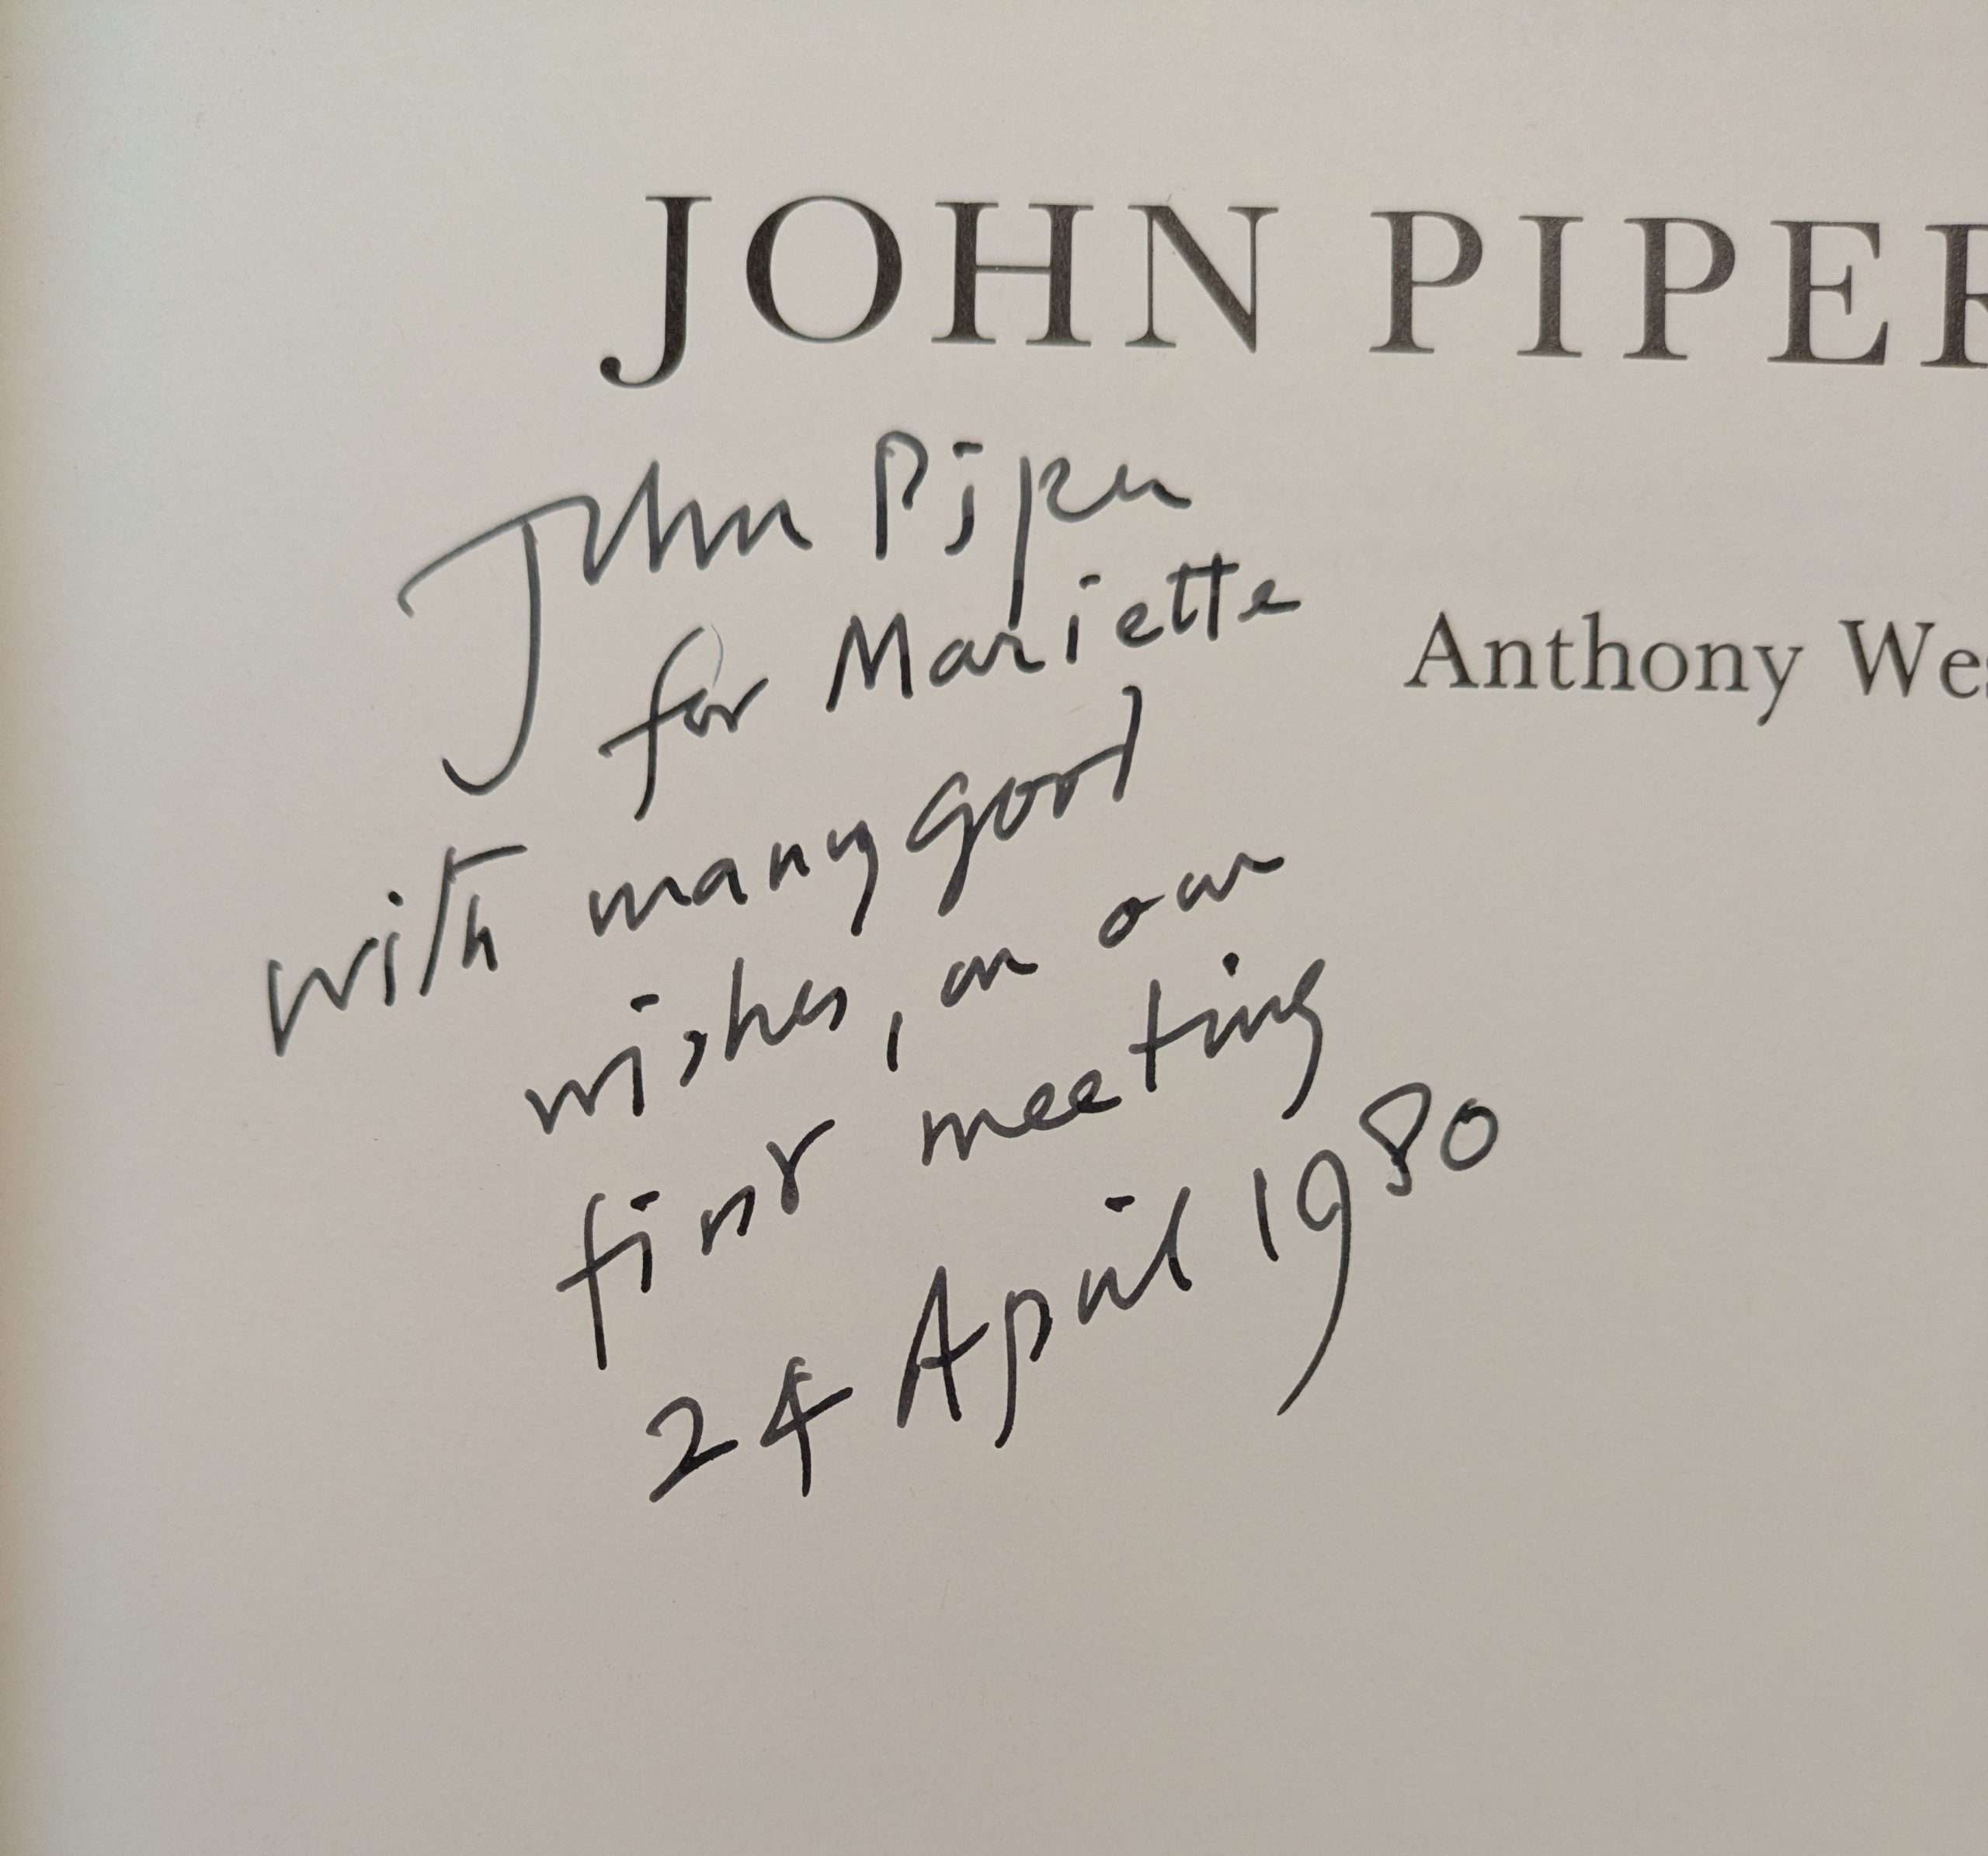 JOHN PIPER
John Piper
for Mariette
Anthony Wes
with many good
wishes, on our
first meeting
24 April 1980